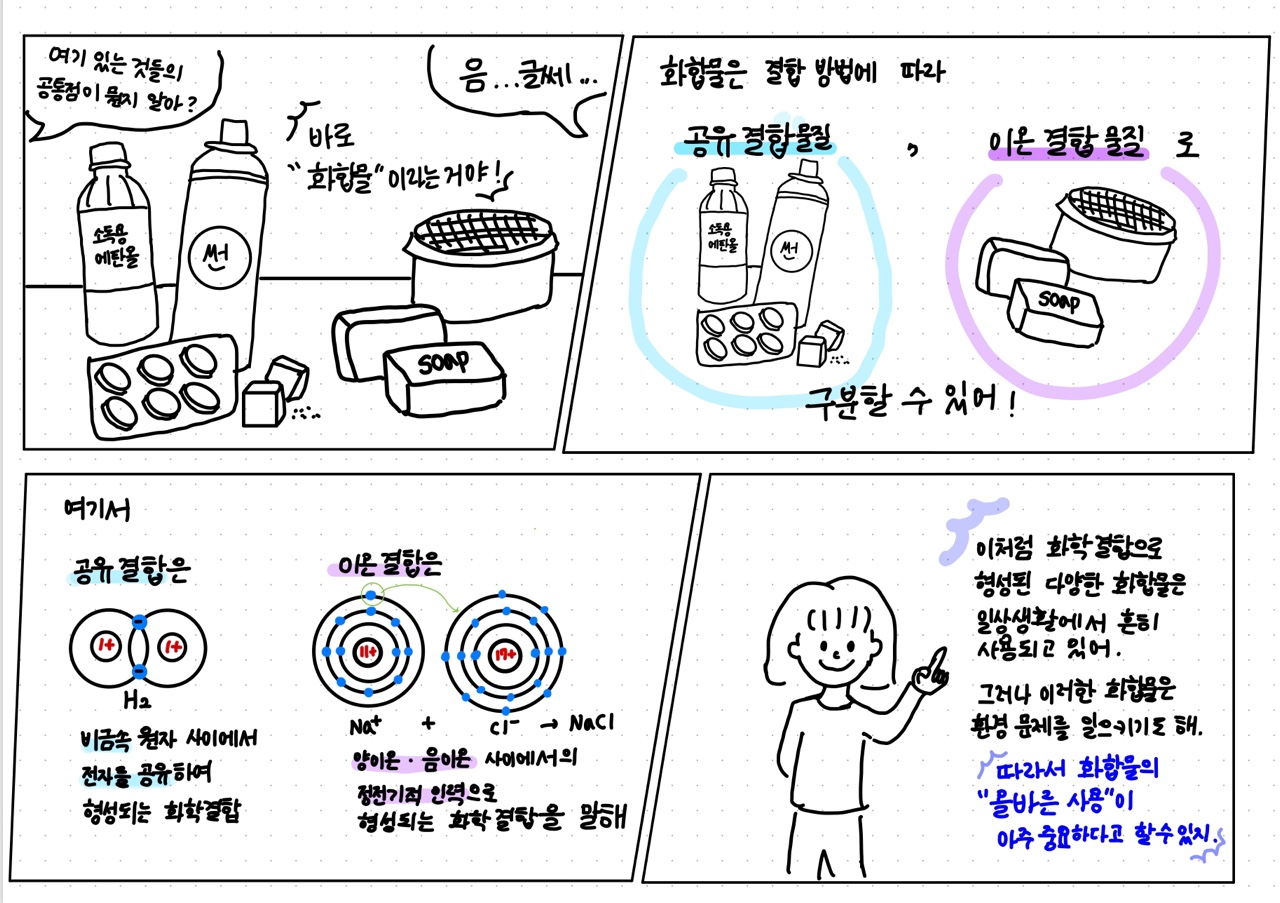 여기 있는 것들의
공통점이 뭔지 알아?
음...글쎄...
바로
"화합물"이라는거야!
소독용
에탄올
썬
SOAP
화합물은 결합 방법에 따라
공유 결합 물질 , 이온 결합 물질 로
소독용
에탄올
썬
SOAP
구분할 수 있어!
여기서
공유 결합은
1+ 1+
H2
비금속 원자 사이에서
전자를 공유하여
형성되는 화학결합
이온 결합은
11+ 17+
Na+ + Cl- → NaCl
양이온·음이온 사이에서의
정전기적 인력으로
형성되는 화학 결합을 말해
이처럼 화학결합으로
형성된 다양한 화합물은
일상생활에서 흔히
사용되고 있어.
그러나 이러한 화합물은
환경 문제를 일으키기도 해.
따라서 화합물의
"올바른 사용"이
아주 중요하다고 할 수 있지.